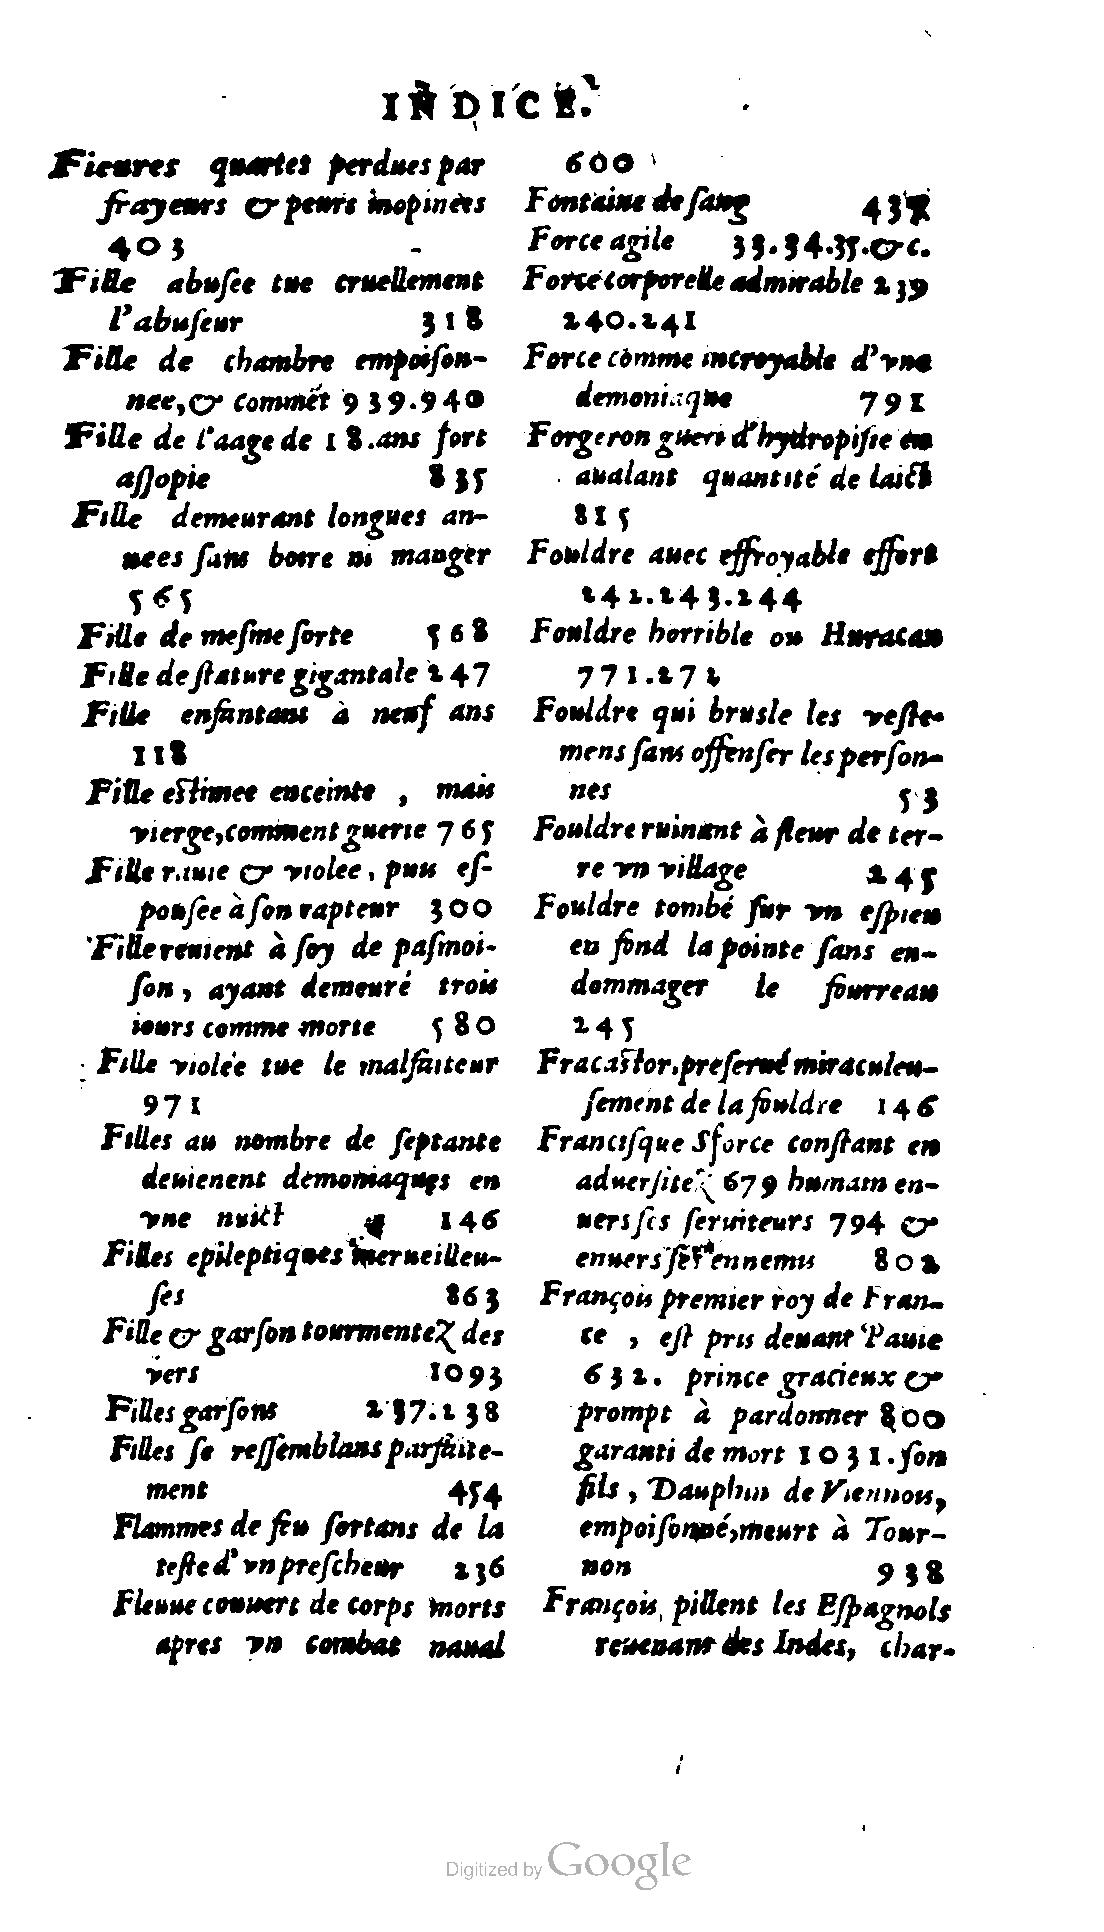 INDICE.
Fieures quartes perdues par
frayeurs & peurs inopinées
403
Fille abuſee tue cruellement
l'abuſeur 318
Fille de chambre empoiſon-
nee, & commẽt 939.940
Fille de l'aage de 18. ans fort
aſſopie 835
Fille demeurant longues an-
nees ſans boire ni manger
565
Fille de meſme ſorte 568
Fille de ſtature gigantale 247
Fille enfantans à neuf ans
118
Fille eſtimee enceinte, mais
vierge, comment guerie 765
Fille rauie & violee, puis eſ-
pouſee à ſon rapteur 300
Fille reuient à ſoy de paſmoi-
ſon, ayant demeuré trois
iours comme morte 580
Fille violée tue le malfaiteur
971
Filles au nombre de ſeptante
deuienent demoniaques en
vne nuict 146
Filles epileptiques merueilleu-
ſes 863
Fille & garſon tourmentez des
vers 1093
Filles garſons 237.238
Filles ſe reſſemblans parfaite-
ment 454
Flammes de feu ſortans de la
teſte d'vn preſcheur 236
Fleuue couuert de corps morts
apres vn combat naual
600
Fontaine de ſang
Force agile 33.34.35.&c.
Force corporelle admirable 239
240.241
Force comme incroyable d'vne
demoniaque 791
Forgeron gueri d'hydropiſie en
aualant quantité de laict
815
Fouldre auec effroyable effort
242.243.244
Fouldre horrible ou Huracan
771.272
Fouldre qui brusle les veſte-
mens ſans offenſer les perſon-
nes 53
Fouldre ruinant à fleur de ter-
re vn village 245
Fouldre tombé ſur vn eſpieu
en fond la pointe ſans en-
dommager le fourreau
245
Fracaſtor, preſerué miraculeu-
ſement de la fouldre 146
Franciſque Sforce conſtant en
aduerſitez 679 humain en-
uers ſes ſeruiteurs 794 &
enuers ſes ennemis 802
François premier roy de Fran-
ce, eſt pris deuant Pauie
632. prince gracieux &
prompt à pardonner 800
garanti de mort 1031. ſon
fils, Dauphin de Viennois,
empoiſonné, meurt à Tour-
non 938
François, pillent les Eſpagnols
reuenans des Indes, char-
Digitized by Google